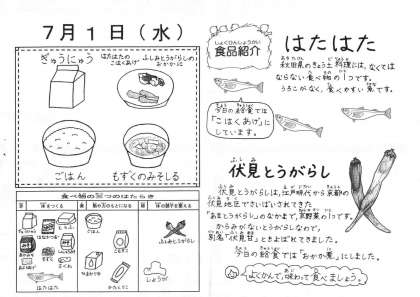 7月1日（水）
ぎゅうにゅう
はたはたの
こはくあげ
ふしみとうがらしの
おかかに
ごはん
もずくのみそしる
食べ物の三つのはたらき
しょくひんしょうかい
食品紹介
はたはた
秋田県のきょう土料理には、なくては
ならない食べ物の1つです。
うろこがなく、食べやすい魚です。
今日の給食では
「こはくあげ」に
しています。
ふしみ
伏見とうがらし
伏見とうがらしは、江戸時代から京都の
伏見地区でさいばいされてきた
「あまとうがらし」のなかまで、京野菜の1つです。
からみがないとうがらしなので、
別名「伏見甘」ともよばれてきました。
今日の給食では「おかか煮」にしました。
よくかんで、味わって食べましょう。